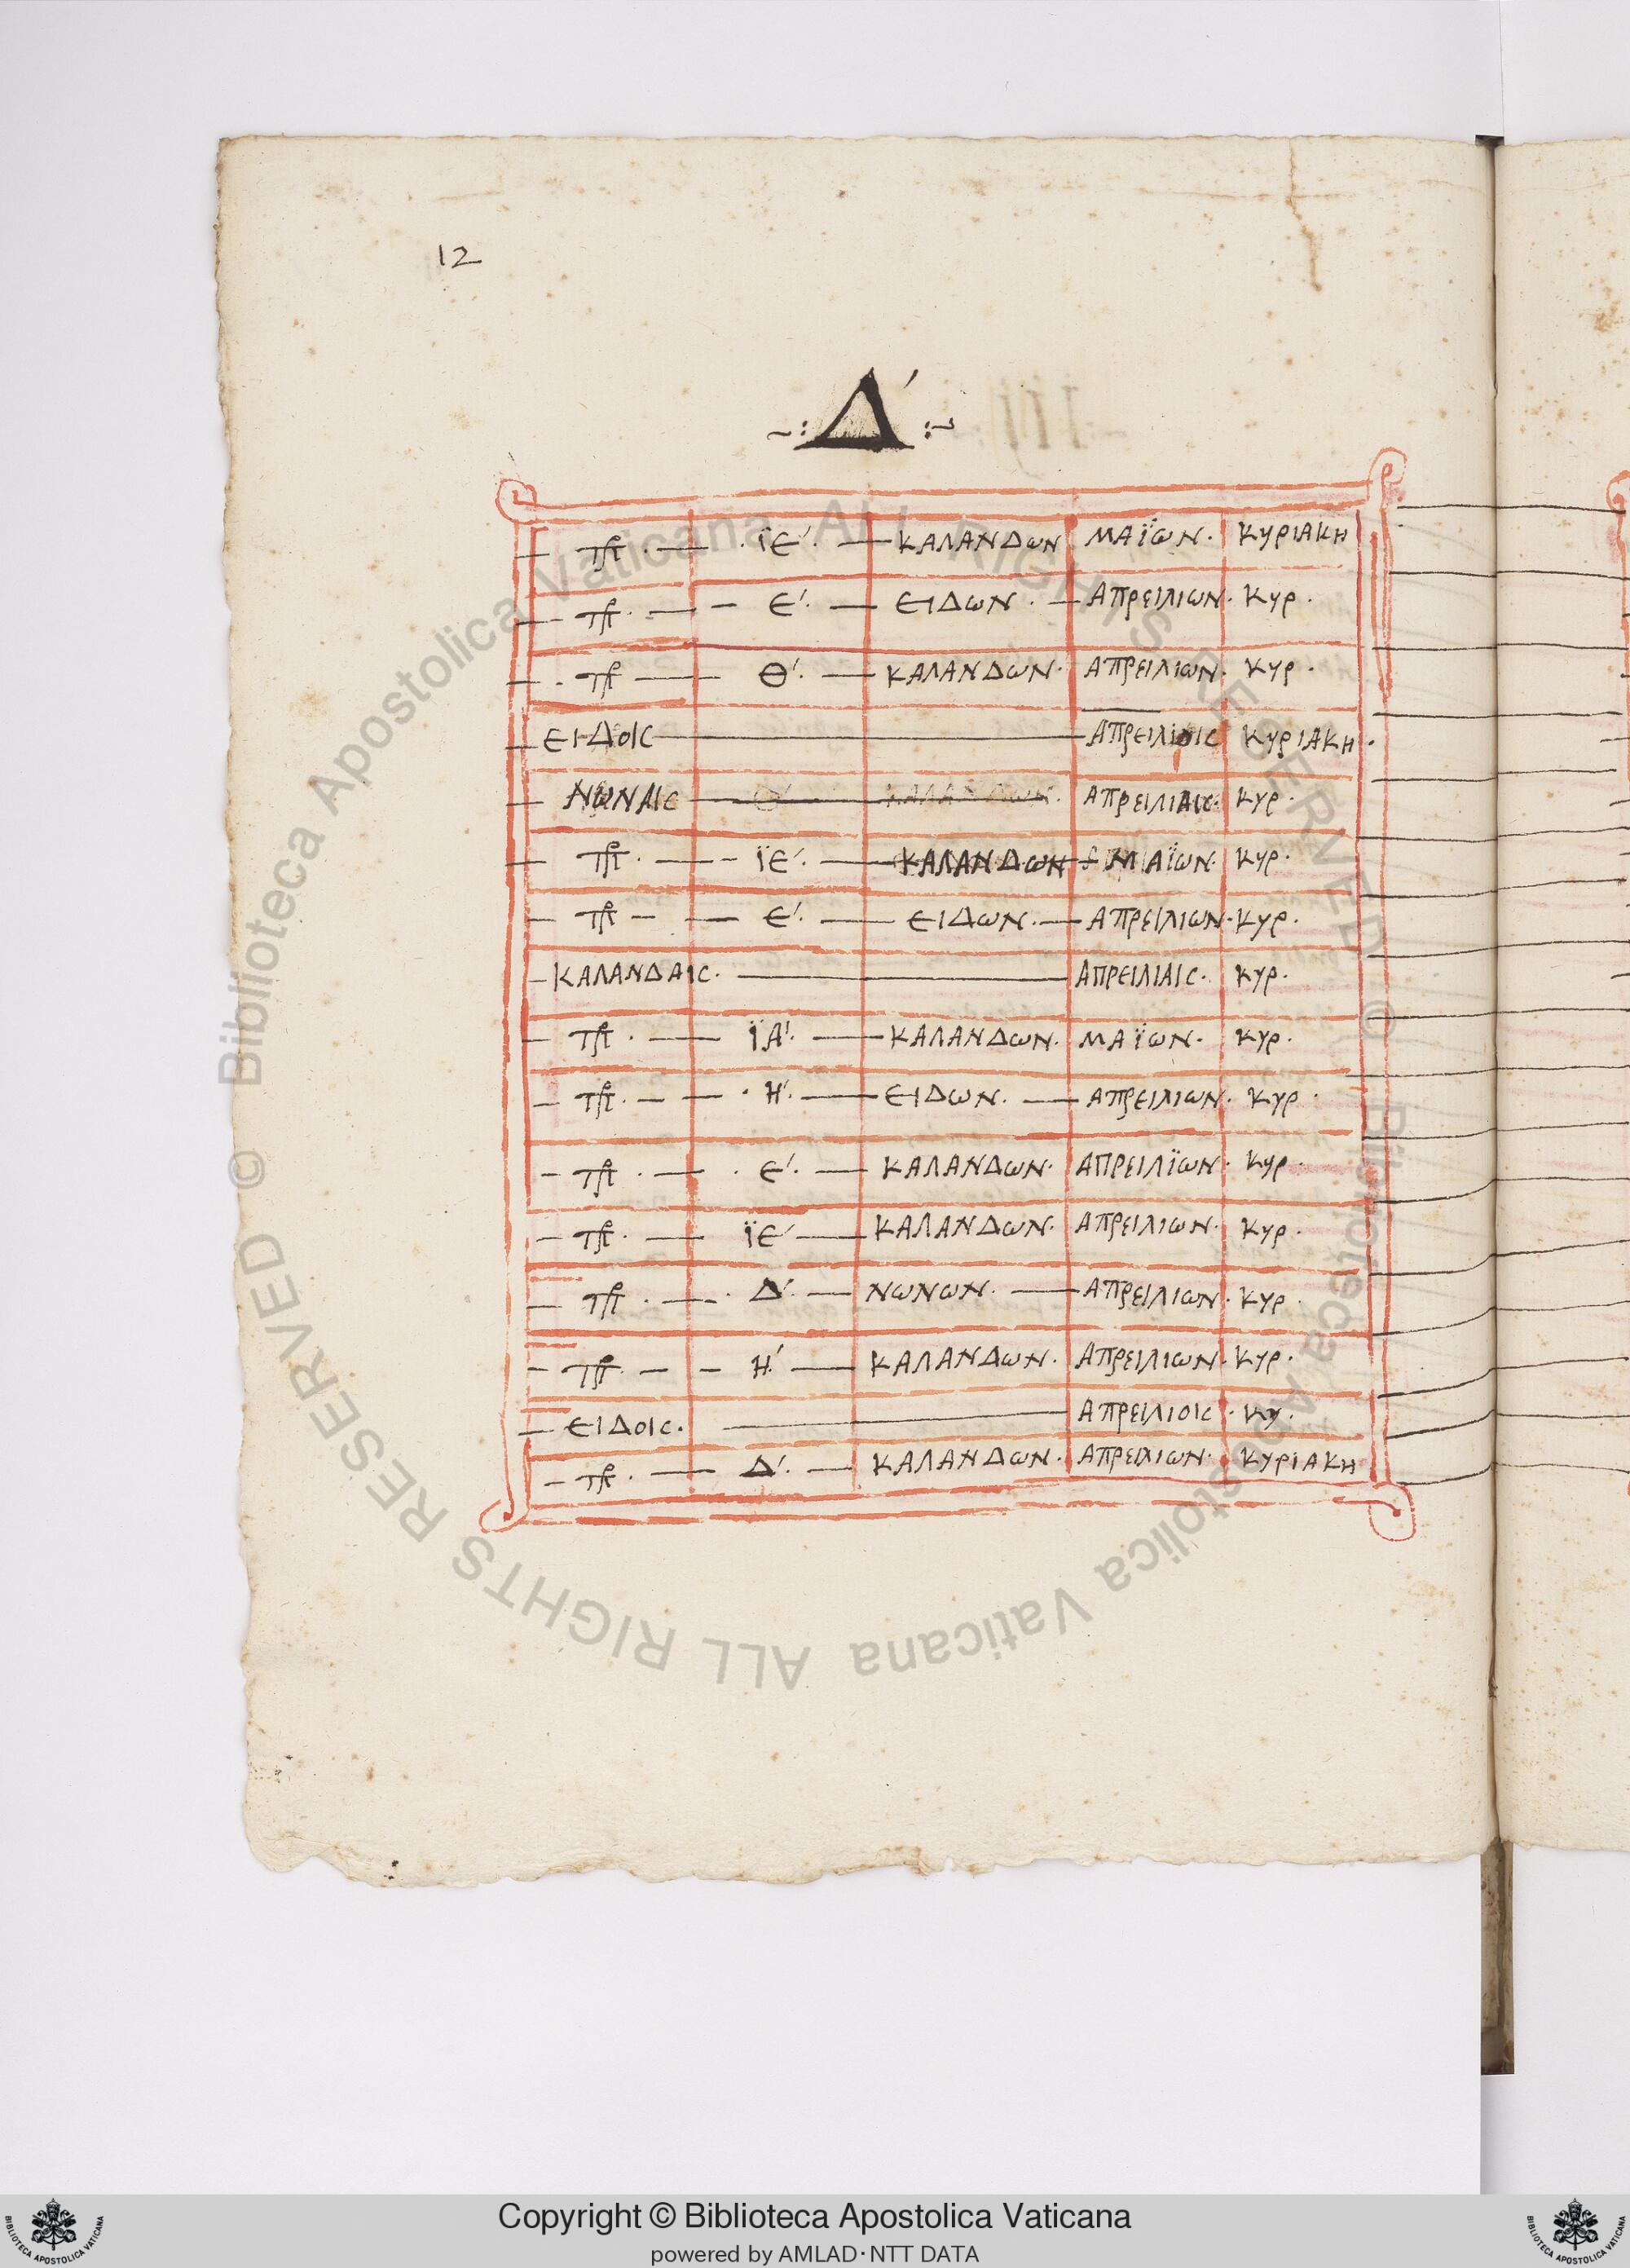 12
Δ´
Τῇ · ΪΕ´· ΚΑΛΑΝΔωΝ ΜΑΪωΝ· ΚΥΡΙΑΚΗ
Ε´· ΕΙΔωΝ · ΑΠΡΕΙΛΙωΝ· ΚΥΡ·
Θ´· ΚΑΛΑΝΔωΝ· ΑΠΡΕΙΛΙωΝ· ΚΥΡ·
ΕΙΔΟΙϹ ΑΠΡΕΙΛΙΟΙϹ ΚΥΡΙΑΚΗ·
ΝωΝΑΙϹ ΑΠΡΕΙΛΙΑΙϹ· ΚΥΡ·
ΪΕ´· ΚΑΛΑΝΔωΝ ΜΑΪωΝ· ΚΥΡ·
Ε´· ΕΙΔωΝ· ΑΠΡΕΙΛΙωΝ· ΚΥΡ·
ΚΑΛΑΝΔΑΙϹ· ΑΠΡΕΙΛΙΑΙϹ· ΚΥΡ·
ΪΑ´· ΚΑΛΑΝΔωΝ· ΜΑΪωΝ· ΚΥΡ·
Η´· ΕΙΔωΝ· ΑΠΡΕΙΛΙωΝ· ΚΥΡ·
Ε´· ΚΑΛΑΝΔωΝ· ΑΠΡΕΙΛΪωΝ· ΚΥΡ·
ΪΕ´ ΚΑΛΑΝΔωΝ· ΑΠΡΕΙΛΙωΝ· ΚΥΡ·
Δ´· ΝωΝωΝ· ΑΠΡΕΙΛΙωΝ· ΚΥΡ·
Η´ ΚΑΛΑΝΔωΝ· ΑΠΡΕΙΛΙωΝ· ΚΥΡ·
ΕΙΔΟΙϹ· ΑΠΡΕΙΛΙΟΙϹ· ΚΥ·
Δ´· ΚΑΛΑΝΔωΝ· ΑΠΡΕΙΛΙωΝ· ΚΥΡΙΑΚΗ
© Biblioteca Apostolica Vaticana ALL RIGHTS RESERVED © Biblioteca Apostolica Vaticana ALL RIGHTS RESERVED
Copyright © Biblioteca Apostolica Vaticana
powered by AMLAD·NTT DATA